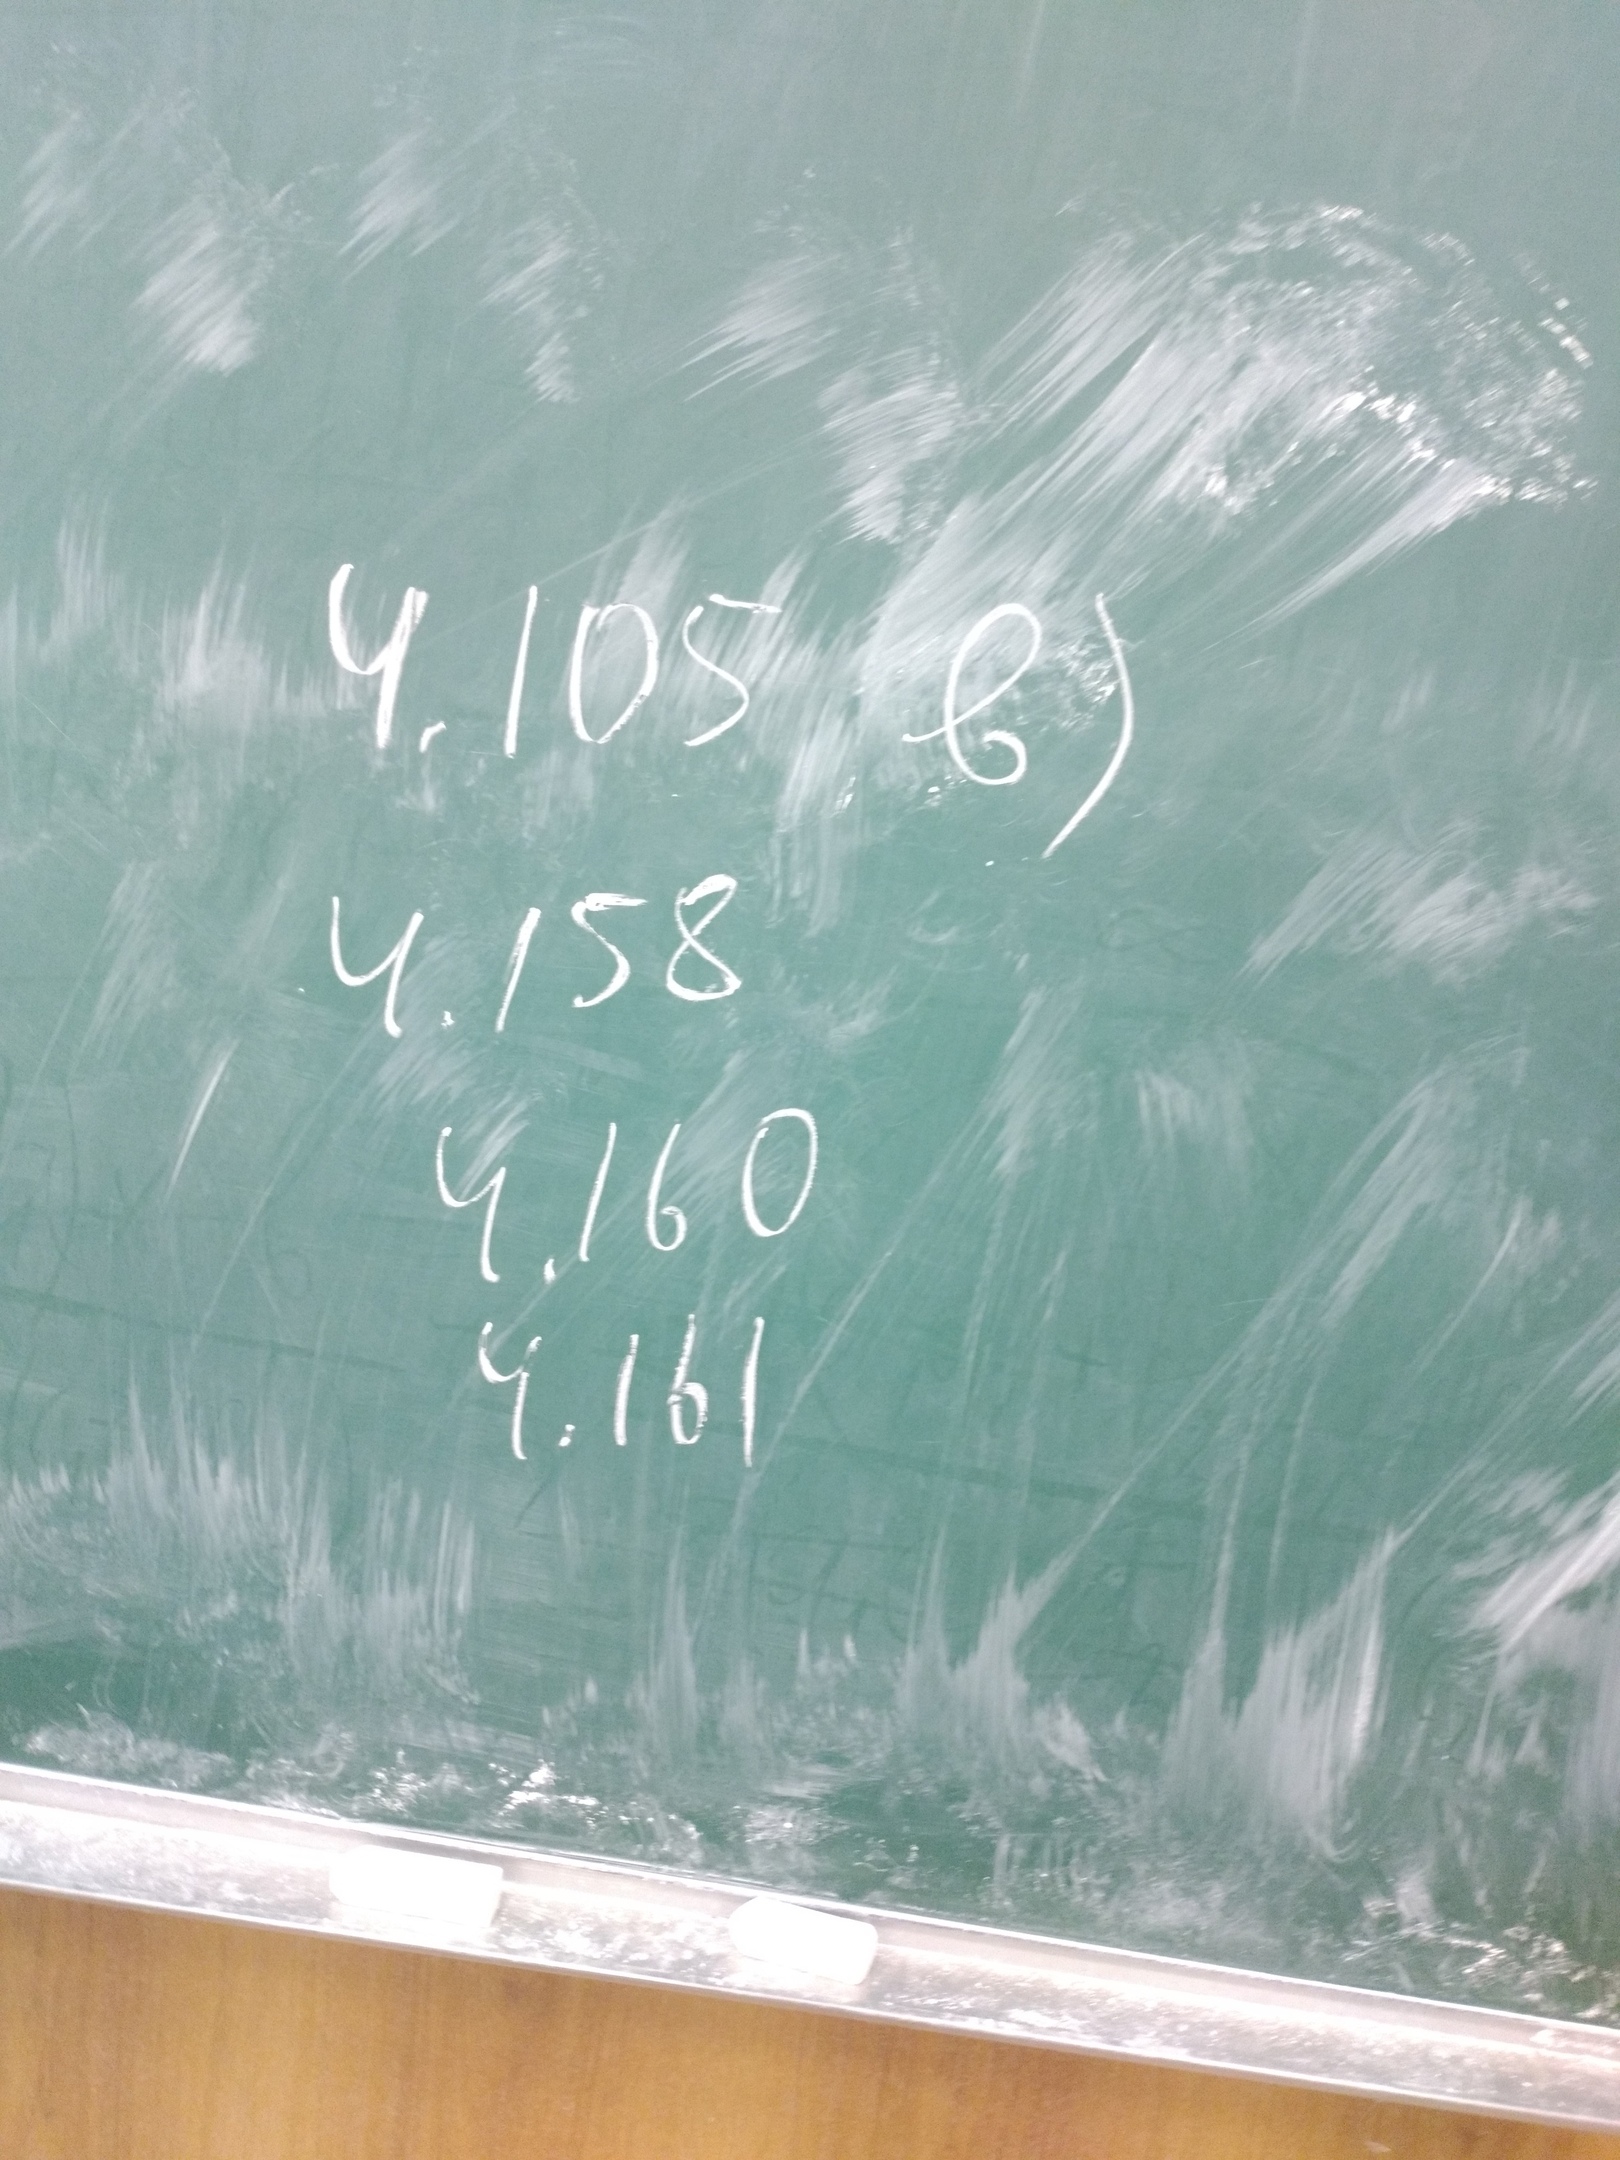 4.105 в)
4.158
4.160
4.161